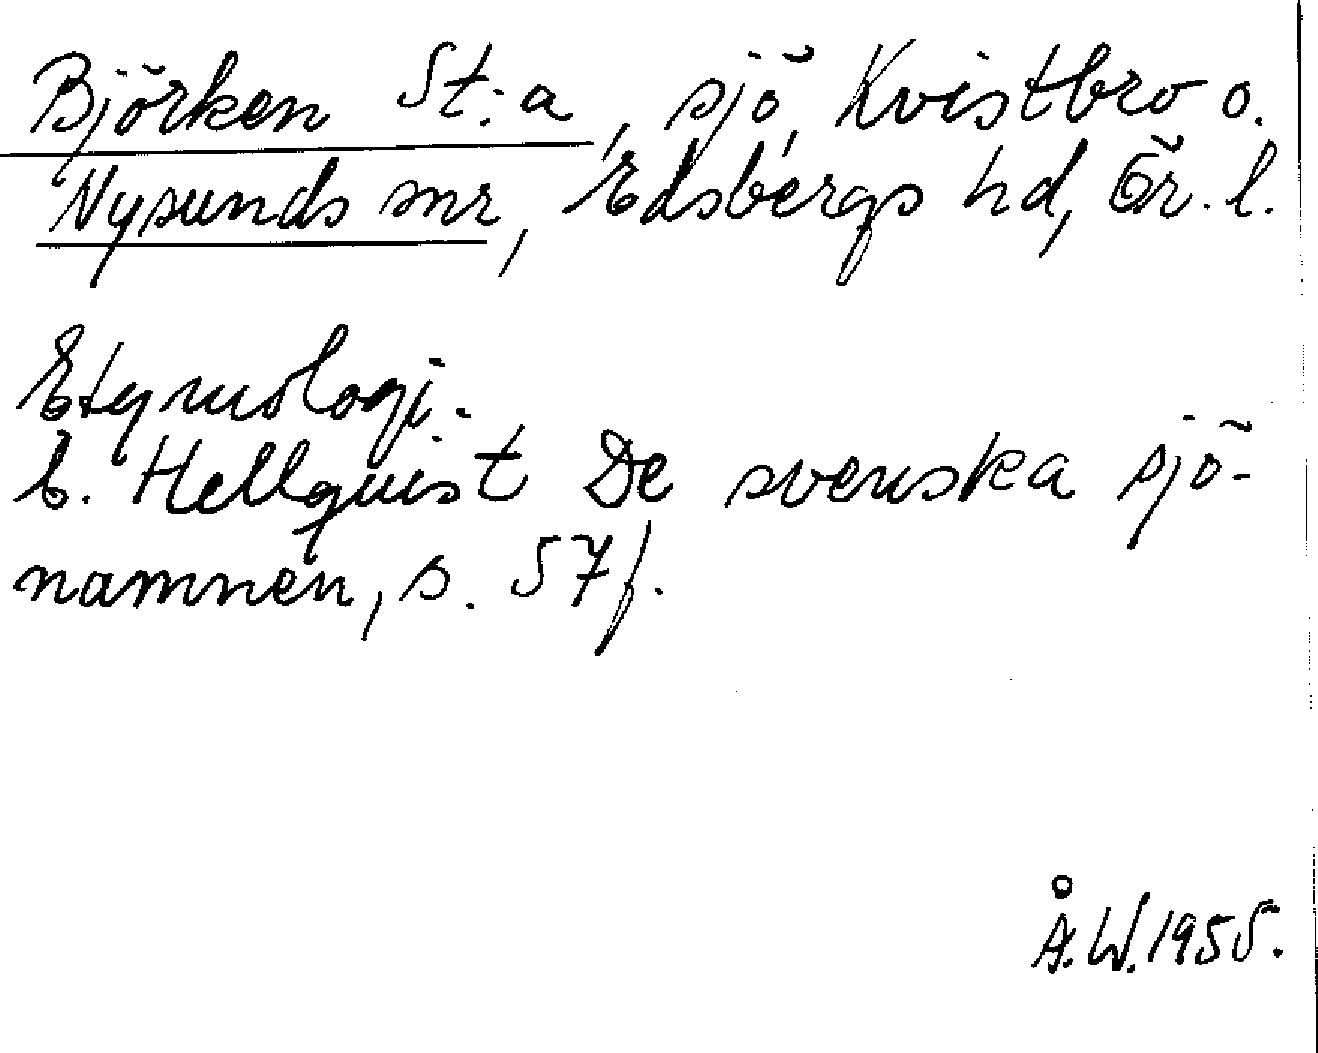 Björken St:a, sjö, Kvistbro o.
Nysunds snr, Edsbergs hd, Ör. l.
Etymologi.
E. Hellquist De svenska sjö-
namnen, s. 57 f.
Å.W. 1955.